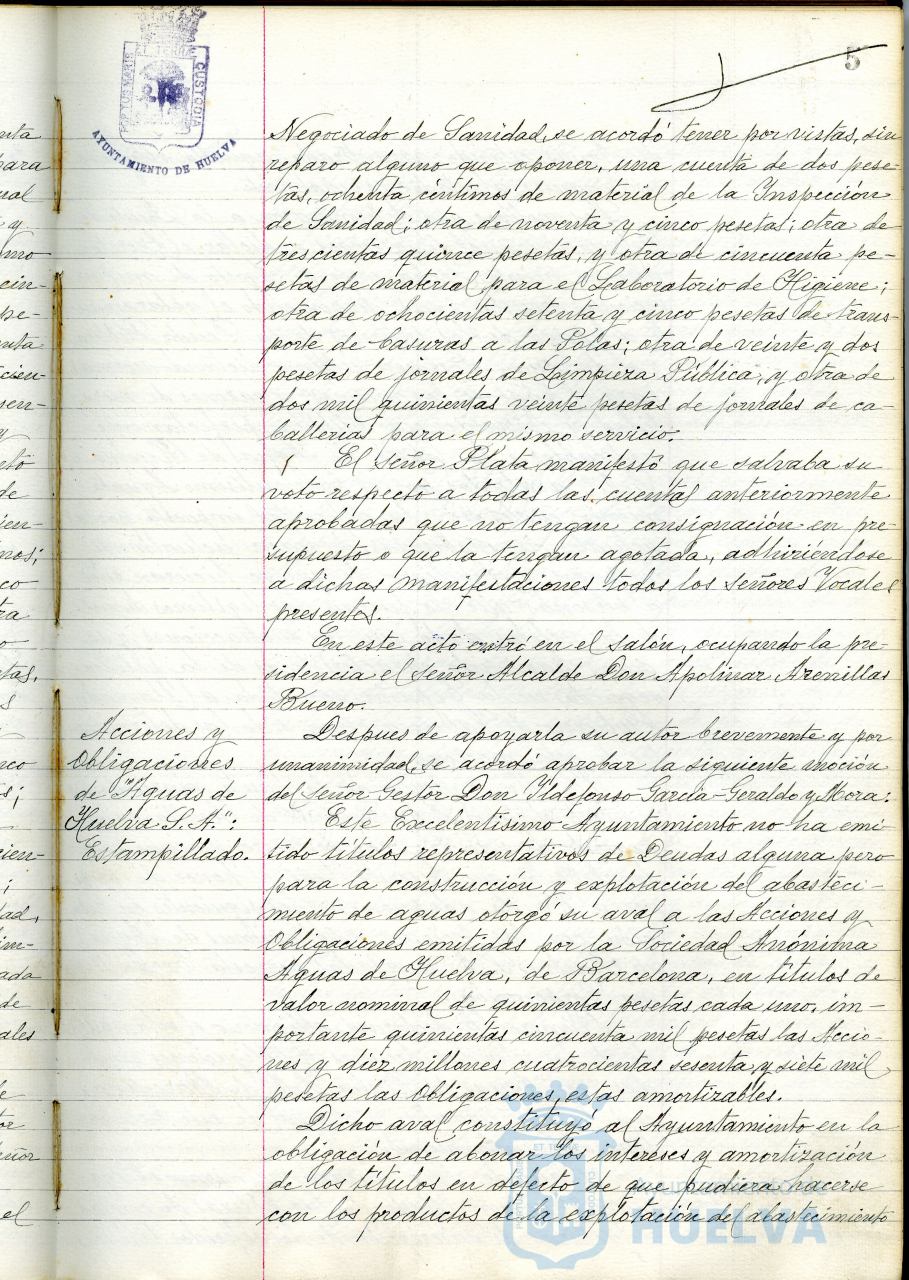 5
PORTUS MARIS
ET TERRE
CUSTODIA
AYUNTAMIENTO DE HUELVA
Negociado de Sanidad, se acordó tener por vistas, sin
reparo alguno que oponer, una cuenta de dos pese-
tas, ochenta céntimos de material de la Inspección
de Sanidad; otra de noventa y cinco pesetas; otra de
trescientas quince pesetas, y otra de cincuenta pe-
setas de material para el Laboratorio de Higiene;
otra de ochocientas setenta y cinco pesetas de trans-
porte de basuras a las Polas; otra de veinte y dos
pesetas de jornales de Limpieza Pública, y otra de
dos mil quinientas veinte pesetas de jornales de ca-
ballerías para el mismo servicio.
El señor Plata manifestó que salvaba su
voto respecto a todas las cuentas anteriormente
aprobadas que no tengan consignación en pre-
supuesto o que la tengan agotada, adhiriéndose
a dichas manifestaciones todos los señores Vocales
presentes.
En este acto entró en el salón, ocupando la pre-
sidencia el señor Alcalde Don Apolinar Arenillas
Bueno.
Acciones y
Obligaciones
de "Aguas de
Huelva S. A.":
Estampillado.
Despues de apoyarla su autor brevemente y por
unanimidad, se acordó aprobar la siguiente moción
del señor Gestor Don Ildefonso García-Geraldo y Mora:
Este Excelentísimo Ayuntamiento no ha emi-
tido títulos representativos de Deudas alguna pero
para la construcción y explotación del abasteci-
miento de aguas otorgó su aval a las Acciones y
Obligaciones emitidas por la Sociedad Anónima
Aguas de Huelva, de Barcelona, en títulos de
valor nominal de quinientas pesetas cada uno, im-
portante quinientas cincuenta mil pesetas las Accio-
nes y diez millones cuatrocientas sesenta y siete mil
pesetas las Obligaciones, estas amortizables.
Dicho aval constituyó al Ayuntamiento en la
obligación de abonar los intereses y amortización
de los títulos en defecto de que pudiera hacerse
con los productos de la explotación del abastecimiento
HUELVA